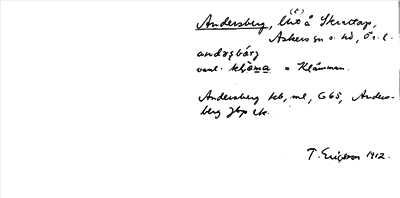 Andersberg, lht å Skrattorp,
(e)
Askers sn o. hd, Ör. l.
andəşbárj
vanl. klóma = Klåmman.
Andersberg kb, ml, G65, Anders-
berg Jbp etc.
T. Ericsson 1912.